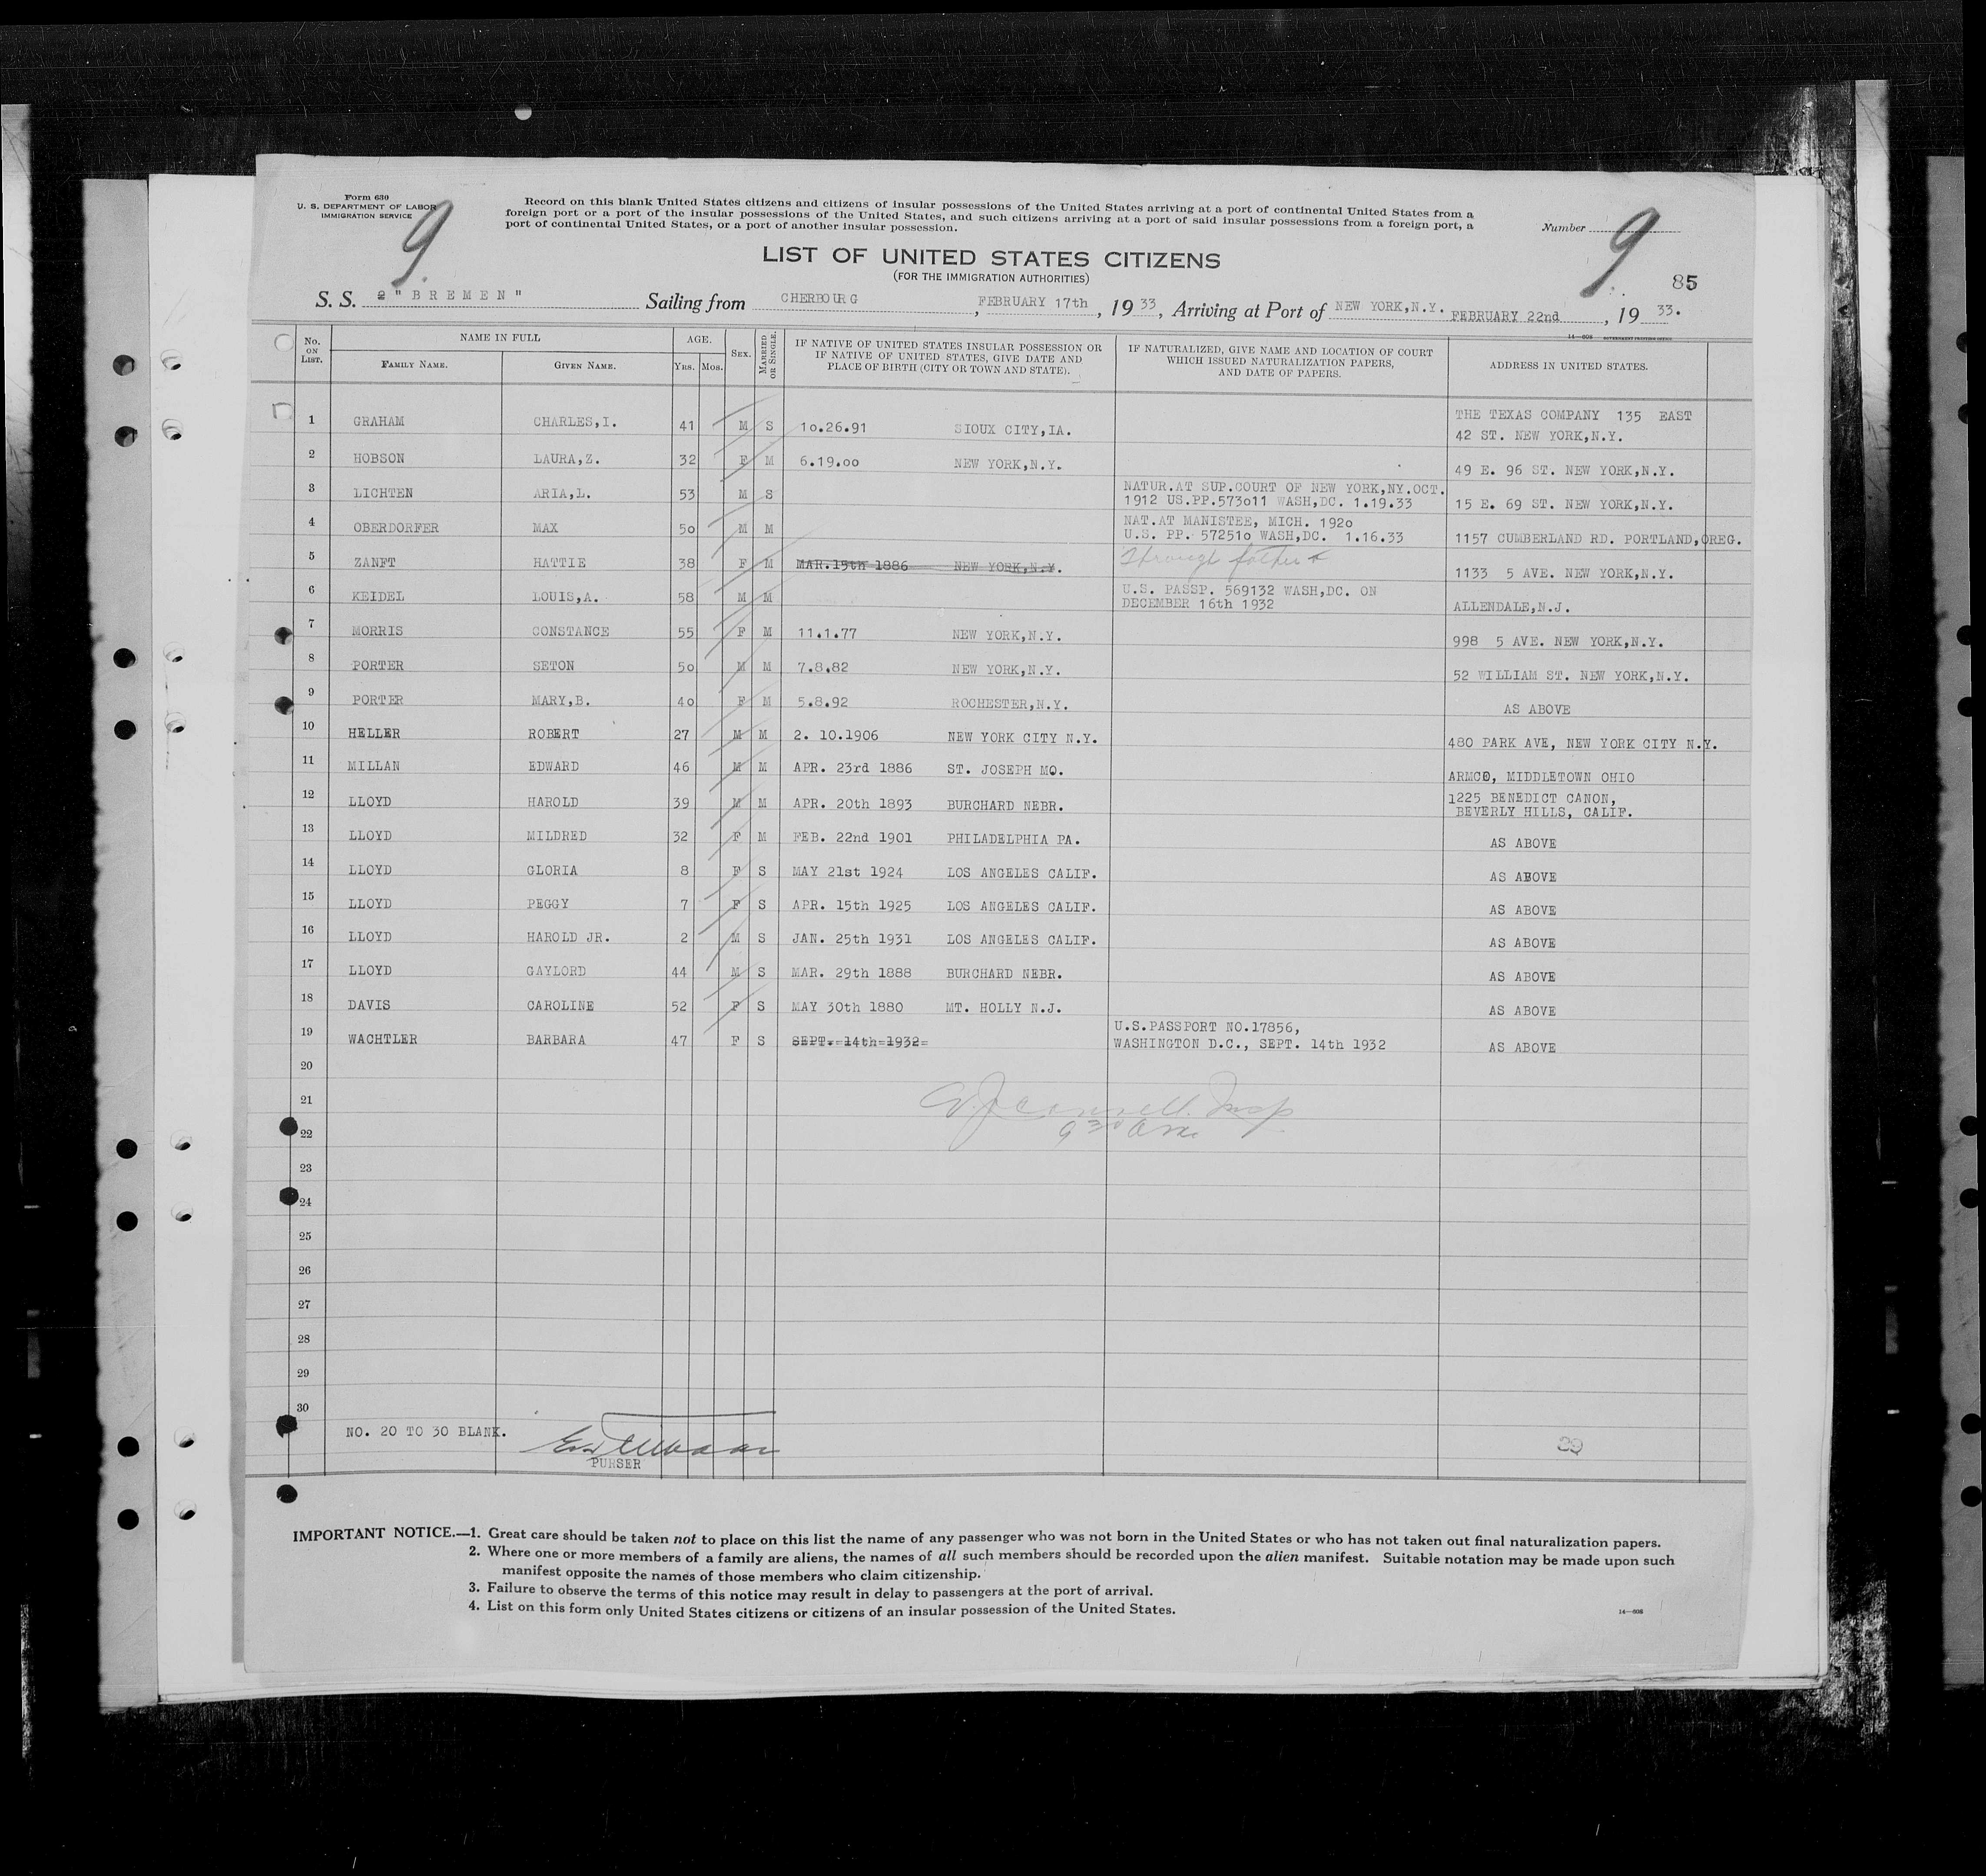 Form 630
U. S. DEPARTMENT OF LABOR
IMMIGRATION SERVICE
9.
Record on this blank United States citizens and citizens of insular possessions of the United States arriving at a port of continental United States from a
foreign port or a port of the insular possessions of the United States, and such citizens arriving at a port of said insular possessions from a foreign port, a
port of continental United States, or a port of another insular possession.
Number 9
85
LIST OF UNITED STATES CITIZENS
(FOR THE IMMIGRATION AUTHORITIES)
S. S. "BREMEN" Sailing from CHERBOURG, FEBRUARY 17th, 1933, Arriving at Port of NEW YORK,N.Y. FEBRUARY 22nd, 1933.
14—608 GOVERNMENT PRINTING OFFICE
No. ON LIST. NAME IN FULL FAMILY NAME. GIVEN NAME. AGE. YRS. MOS. SEX. MARRIED OR SINGLE. IF NATIVE OF UNITED STATES INSULAR POSSESSION OR IF NATIVE OF UNITED STATES, GIVE DATE AND PLACE OF BIRTH (CITY OR TOWN AND STATE). IF NATURALIZED, GIVE NAME AND LOCATION OF COURT WHICH ISSUED NATURALIZATION PAPERS, AND DATE OF PAPERS. ADDRESS IN UNITED STATES.
1 GRAHAM CHARLES,I. 41 M S 10.26.91 SIOUX CITY,IA. THE TEXAS COMPANY 135 EAST
42 ST. NEW YORK,N.Y.
2 HOBSON LAURA,Z. 32 F M 6.19.00 NEW YORK,N.Y. 49 E. 96 ST. NEW YORK,N.Y.
3 LICHTEN ARIA,L. 53 M S NATUR.AT SUP.COURT OF NEW YORK,NY.OCT.
1912 US.PP.573011 WASH,DC. 1.19.33 15 E. 69 ST. NEW YORK,N.Y.
4 OBERDORFER MAX 50 M M NAT.AT MANISTEE, MICH. 1920
U.S. PP. 572510 WASH,DC. 1.16.33 1157 CUMBERLAND RD. PORTLAND,OREG.
5 ZANFT HATTIE 38 F M MAR.15th 1886 NEW YORK,N.Y. Through father 1133 5 AVE. NEW YORK,N.Y.
6 KEIDEL LOUIS,A. 58 M M U.S. PASSP. 569132 WASH,DC. ON
DECEMBER 16th 1932 ALLENDALE,N.J.
7 MORRIS CONSTANCE 55 F M 11.1.77 NEW YORK,N.Y. 998 5 AVE. NEW YORK,N.Y.
8 PORTER SETON 50 M M 7.8.82 NEW YORK,N.Y. 52 WILLIAM ST. NEW YORK,N.Y.
9 PORTER MARY,B. 40 F M 5.8.92 ROCHESTER,N.Y. AS ABOVE
10 HELLER ROBERT 27 M M 2. 10.1906 NEW YORK CITY N.Y. 480 PARK AVE, NEW YORK CITY N.Y.
11 MILLAN EDWARD 46 M M APR. 23rd 1886 ST. JOSEPH MO. ARMCO, MIDDLETOWN OHIO
12 LLOYD HAROLD 39 M M APR. 20th 1893 BURCHARD NEBR. 1225 BENEDICT CANON,
BEVERLY HILLS, CALIF.
13 LLOYD MILDRED 32 F M FEB. 22nd 1901 PHILADELPHIA PA. AS ABOVE
14 LLOYD GLORIA 8 F S MAY 21st 1924 LOS ANGELES CALIF. AS ABOVE
15 LLOYD PEGGY 7 F S APR. 15th 1925 LOS ANGELES CALIF. AS ABOVE
16 LLOYD HAROLD JR. 2 M S JAN. 25th 1931 LOS ANGELES CALIF. AS ABOVE
17 LLOYD GAYLORD 44 M S MAR. 29th 1888 BURCHARD NEBR. AS ABOVE
18 DAVIS CAROLINE 52 F S MAY 30th 1880 MT. HOLLY N.J. AS ABOVE
19 WACHTLER BARBARA 47 F S SEPT. 14th 1932 U.S.PASSPORT NO.17856,
WASHINGTON D.C., SEPT. 14th 1932 AS ABOVE
20
21
22
23
24
25
26
27
28
29
30
9 30 am
NO. 20 TO 30 BLANK.
PURSER
29
IMPORTANT NOTICE.—1. Great care should be taken not to place on this list the name of any passenger who was not born in the United States or who has not taken out final naturalization papers.
2. Where one or more members of a family are aliens, the names of all such members should be recorded upon the alien manifest. Suitable notation may be made upon such
manifest opposite the names of those members who claim citizenship.
3. Failure to observe the terms of this notice may result in delay to passengers at the port of arrival.
4. List on this form only United States citizens or citizens of an insular possession of the United States.
14—608